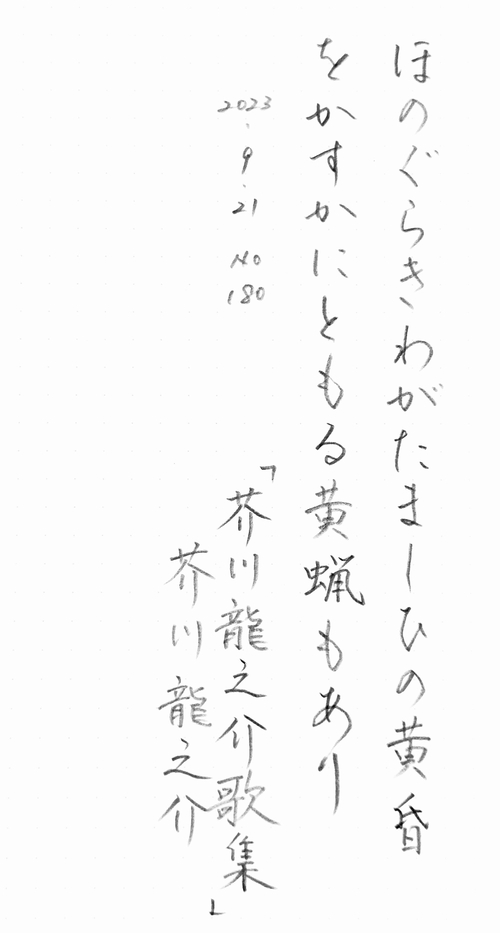 ほのぐらきわがたましひの黄昏
をかすかにともる黄蝋もあり
2023.9.21 No 180
「芥川龍之介歌集」
芥川龍之介